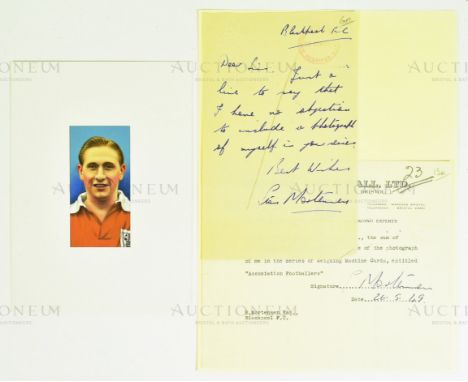 Blackpool F.C
Dear Sir. Just a
line to say that
I have no objection
to include a photograph
of myself in your series
Best Wishes
Stan Mortensen
23
ALL, LTD.
, the sum of
e of the photograph
of me in the series of Weighing Machine Cards, entitled
"Association Footballers"
Signature..... S Mortensen
Date
S.Mortensen Esq.,
Blackpool F.C.
AUCTIONEUM
BRISTOL & BATH AUCTIONEERS